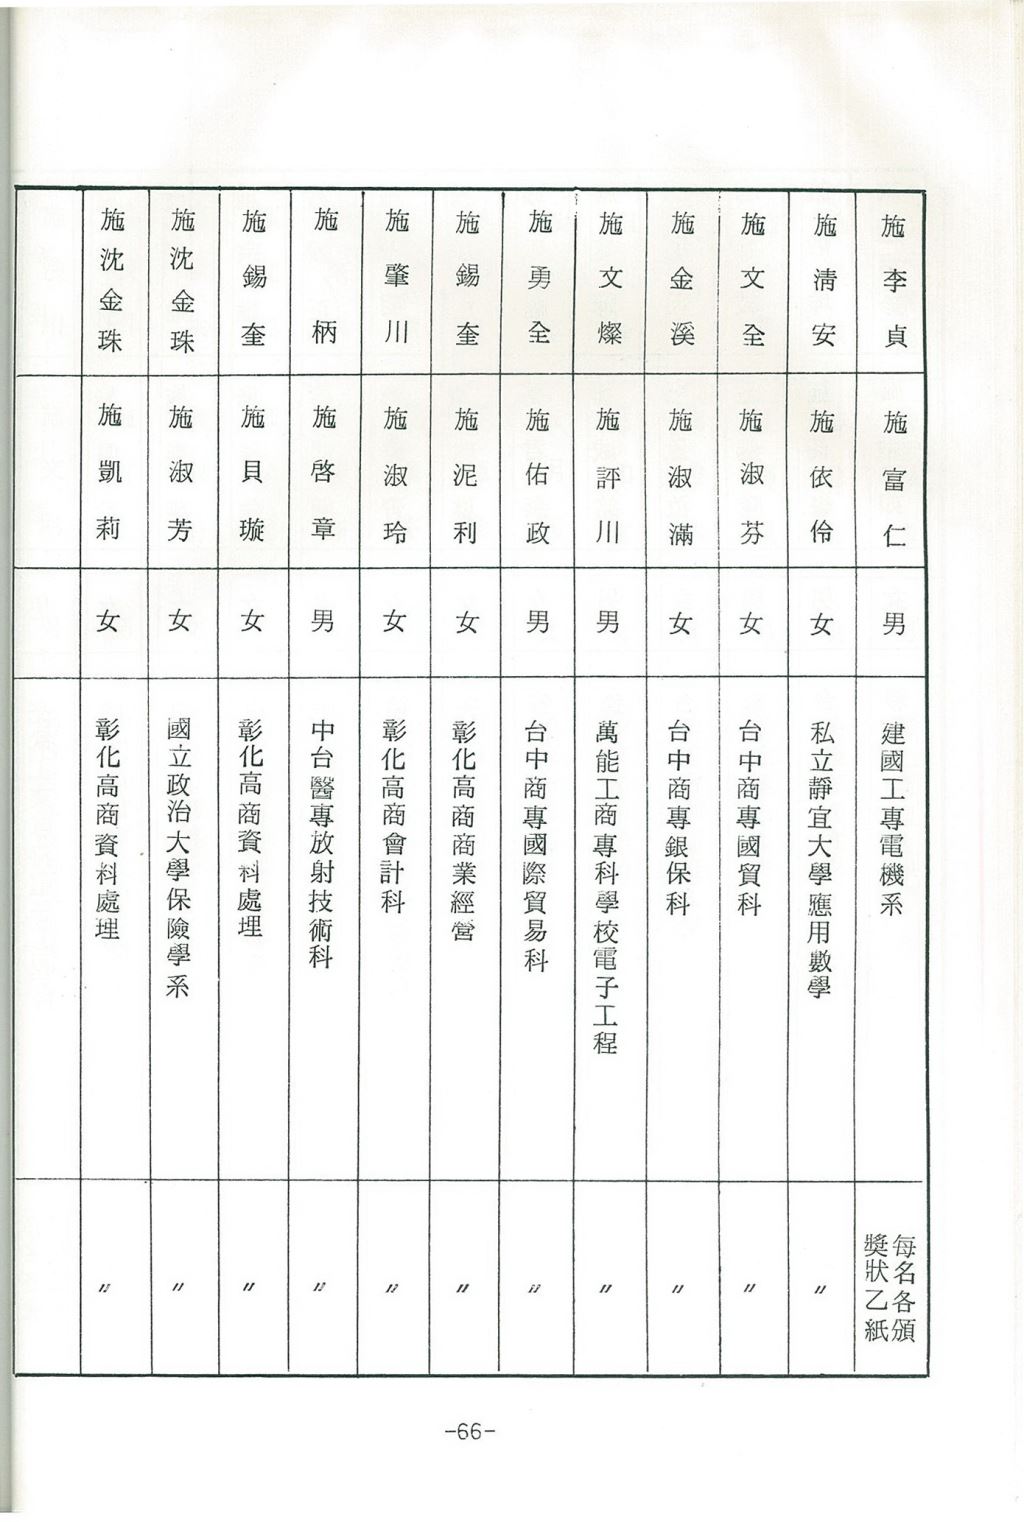 施李貞
施富仁
男
建國工專電機系
每名各頒
獎狀乙紙
施清安
施依伶
女
私立靜宜大學應用數學
〃
施文全
施淑芬
女
台中商專國貿科
〃
施金溪
施淑滿
女
台中商專銀保科
〃
施文燦
施評川
男
萬能工商專科學校電子工程
〃
施勇全
施佑政
男
台中商專國際貿易科
〃
施錫奎
施泥利
女
彰化高商商業經營
〃
施肇川
施淑玲
女
彰化高商會計科
〃
施柄
施啓章
男
中台醫專放射技術科
〃
施錫奎
施貝璇
女
彰化高商資料處理
〃
施沈金珠
施淑芳
女
國立政治大學保險學系
〃
施沈金珠
施凱莉
女
彰化高商資料處理
〃
-66-